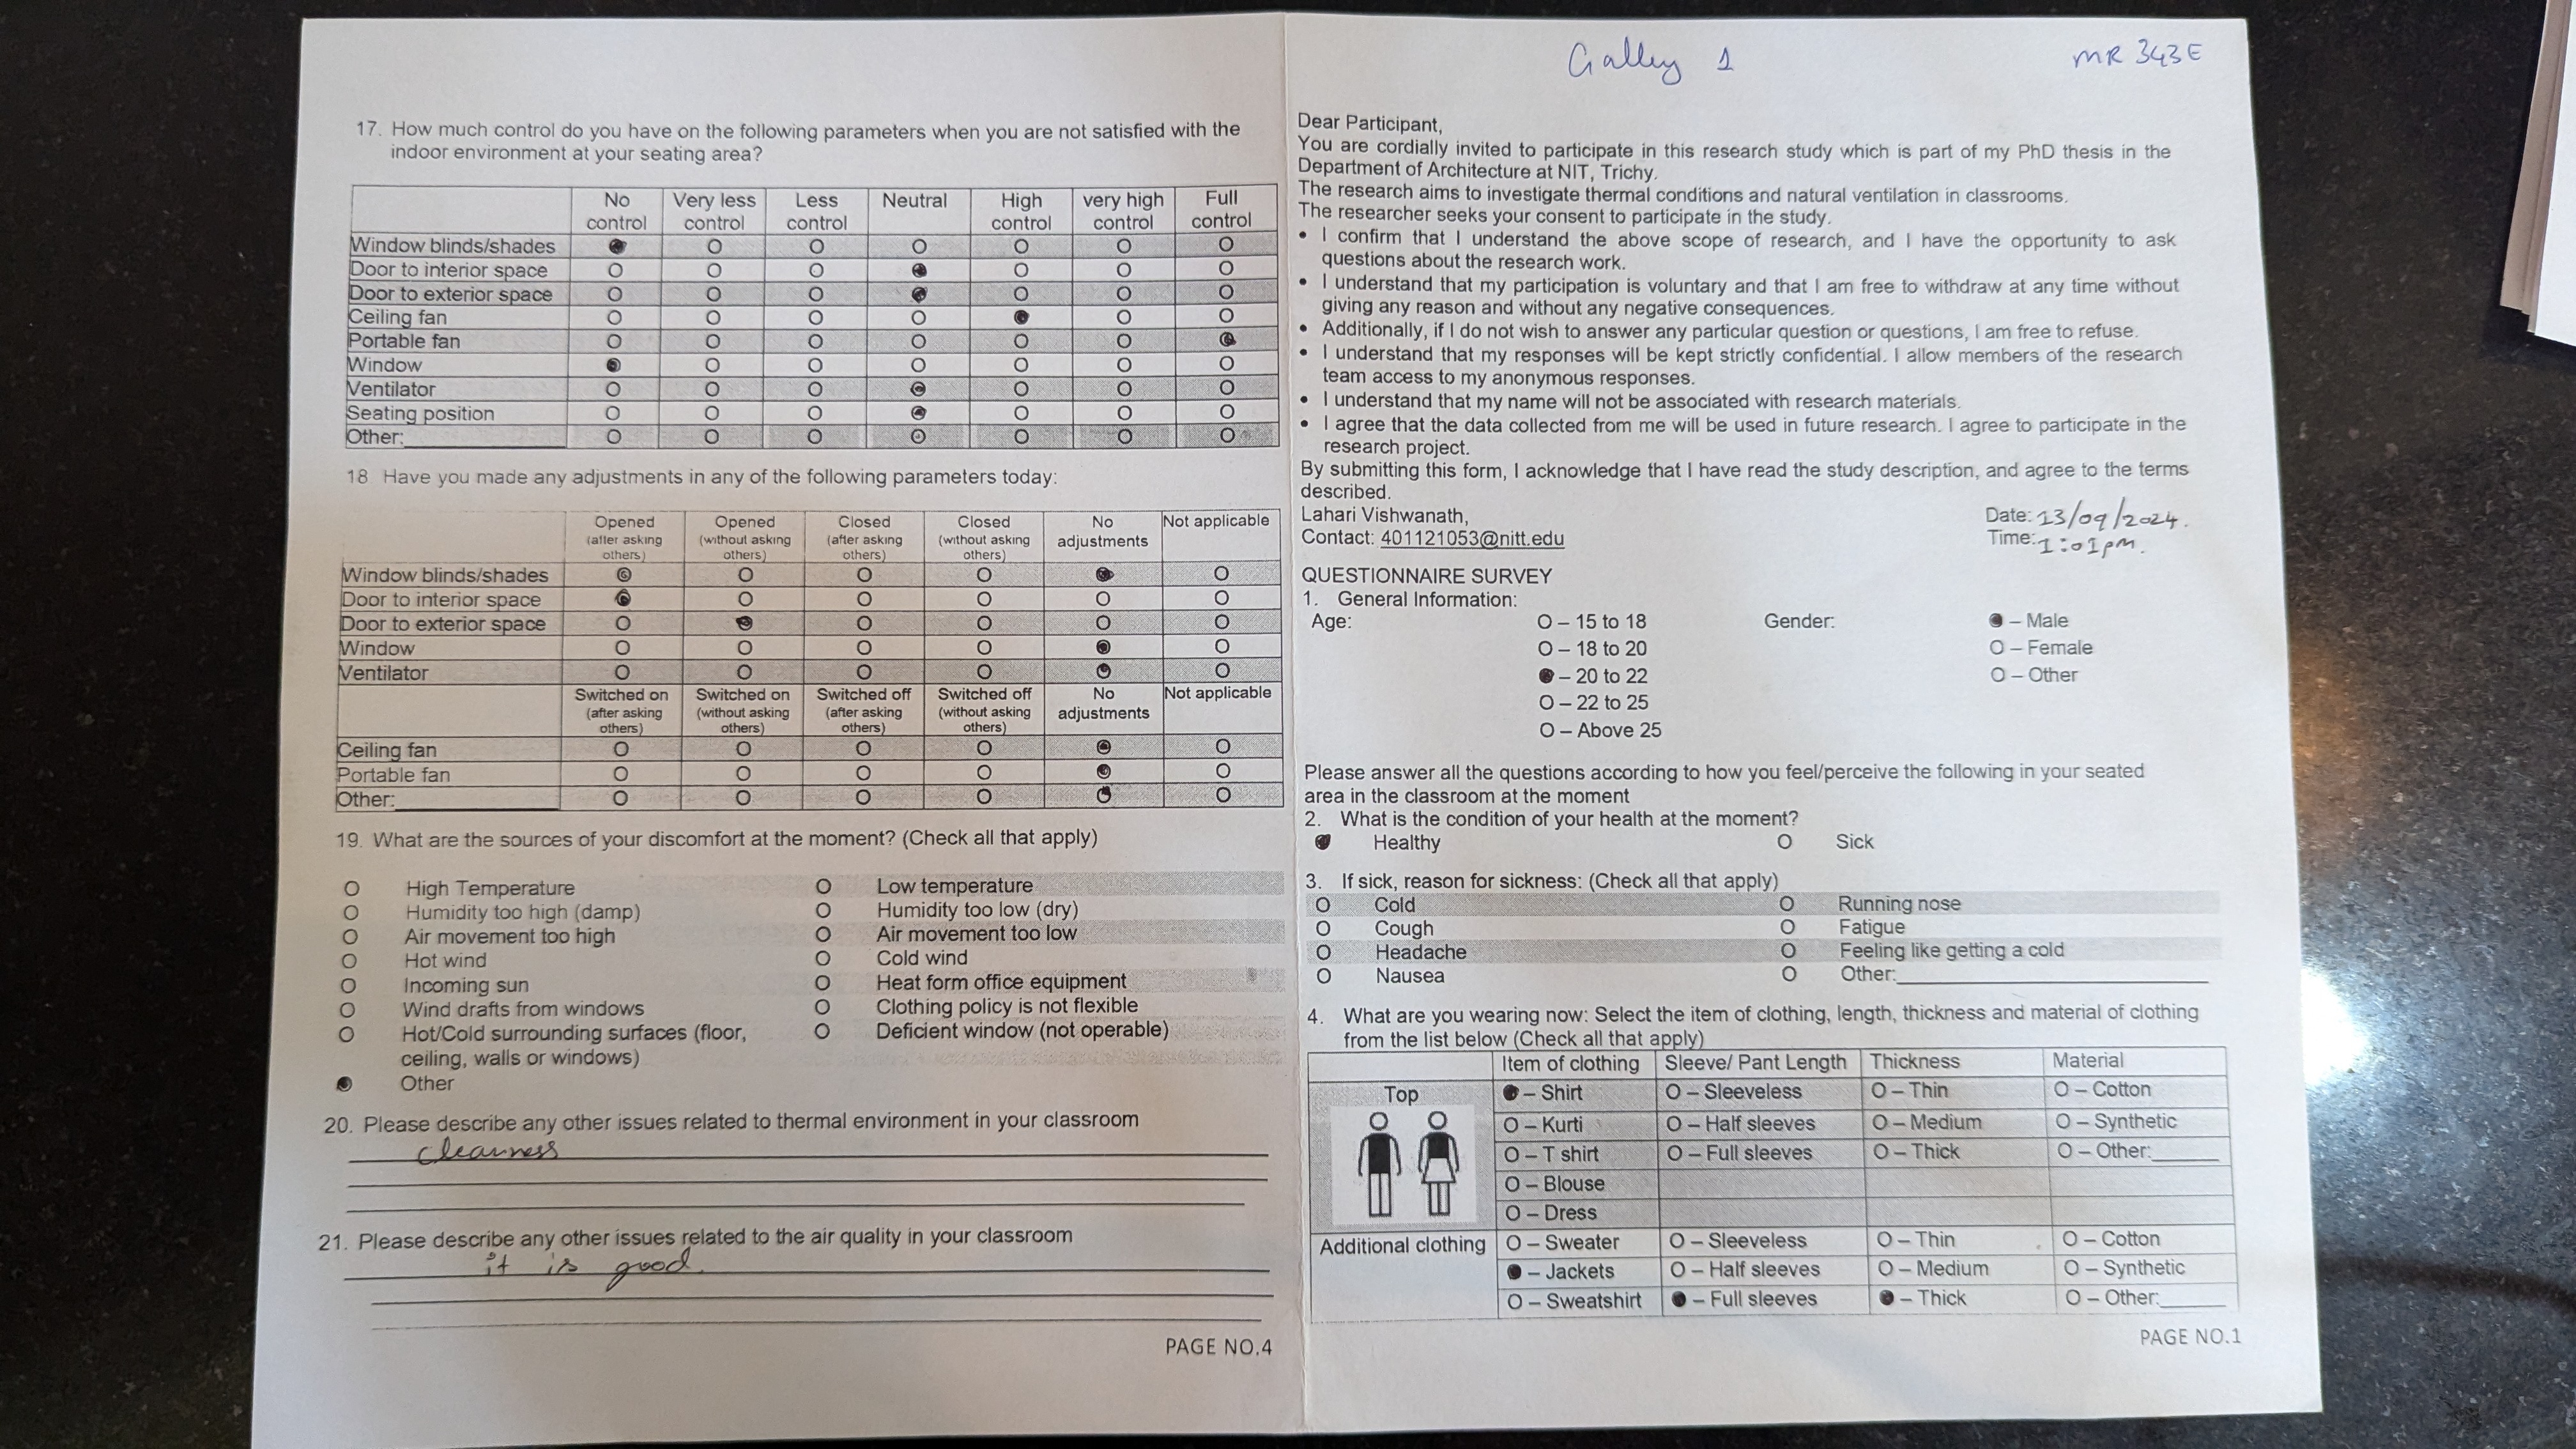 17. How much control do you have on the following parameters when you are not satisfied with the
indoor environment at your seating area?
No control Very less control Less control Neutral High control very high control Full control
Window blinds/shades ● O O O O O O
Door to interior space O O O ● O O O
Door to exterior space O O O ● O O O
Ceiling fan O O O O ● O O
Portable fan O O O O O O ●
Window ● O O O O O O
Ventilator O O O ● O O O
Seating position O O O ● O O O
Other:__________ O O O ● O O O
18 Have you made any adjustments in any of the following parameters today:
Opened (after asking others) Opened (without asking others) Closed (after asking others) Closed (without asking others) No adjustments Not applicable
Window blinds/shades ● O O O ● O
Door to interior space ● O O O O O
Door to exterior space O ● O O O O
Window O O O O ● O
Ventilator O O O O ● O
Switched on (after asking others) Switched on (without asking others) Switched off (after asking others) Switched off (without asking others) No adjustments Not applicable
Ceiling fan O O O O ● O
Portable fan O O O O ● O
Other:__________ O O O O ● O
19. What are the sources of your discomfort at the moment? (Check all that apply)
O High Temperature O Low temperature
O Humidity too high (damp) O Humidity too low (dry)
O Air movement too high O Air movement too low
O Hot wind O Cold wind
O Incoming sun O Heat form office equipment
O Wind drafts from windows O Clothing policy is not flexible
O Hot/Cold surrounding surfaces (floor, O Deficient window (not operable)
ceiling, walls or windows)
● Other
20. Please describe any other issues related to thermal environment in your classroom
cleanness
21. Please describe any other issues related to the air quality in your classroom
it is good.
PAGE NO.4
Gallery 1 MR 343E
Dear Participant,
You are cordially invited to participate in this research study which is part of my PhD thesis in the
Department of Architecture at NIT, Trichy.
The research aims to investigate thermal conditions and natural ventilation in classrooms.
The researcher seeks your consent to participate in the study.
• I confirm that I understand the above scope of research, and I have the opportunity to ask
questions about the research work.
• I understand that my participation is voluntary and that I am free to withdraw at any time without
giving any reason and without any negative consequences.
• Additionally, if I do not wish to answer any particular question or questions, I am free to refuse.
• I understand that my responses will be kept strictly confidential. I allow members of the research
team access to my anonymous responses.
• I understand that my name will not be associated with research materials.
• I agree that the data collected from me will be used in future research. I agree to participate in the
research project.
By submitting this form, I acknowledge that I have read the study description, and agree to the terms
described.
Lahari Vishwanath, Date: 13/09/2024.
Contact: 401121053@nitt.edu Time: 1:01pm.
QUESTIONNAIRE SURVEY
1. General Information:
Age: O – 15 to 18 Gender: ● – Male
O – 18 to 20 O – Female
● – 20 to 22 O – Other
O – 22 to 25
O – Above 25
Please answer all the questions according to how you feel/perceive the following in your seated
area in the classroom at the moment
2. What is the condition of your health at the moment?
● Healthy O Sick
3. If sick, reason for sickness: (Check all that apply)
O Cold O Running nose
O Cough O Fatigue
O Headache O Feeling like getting a cold
O Nausea O Other:__________
4. What are you wearing now: Select the item of clothing, length, thickness and material of clothing
from the list below (Check all that apply)
Item of clothing Sleeve/ Pant Length Thickness Material
Top ● – Shirt O – Sleeveless O – Thin O – Cotton
O – Kurti O – Half sleeves O – Medium O – Synthetic
O – T shirt O – Full sleeves O – Thick O – Other:______
O – Blouse
O – Dress
Additional clothing O – Sweater O – Sleeveless O – Thin O – Cotton
● – Jackets O – Half sleeves O – Medium O – Synthetic
O – Sweatshirt ● – Full sleeves ● – Thick O – Other:______
PAGE NO.1